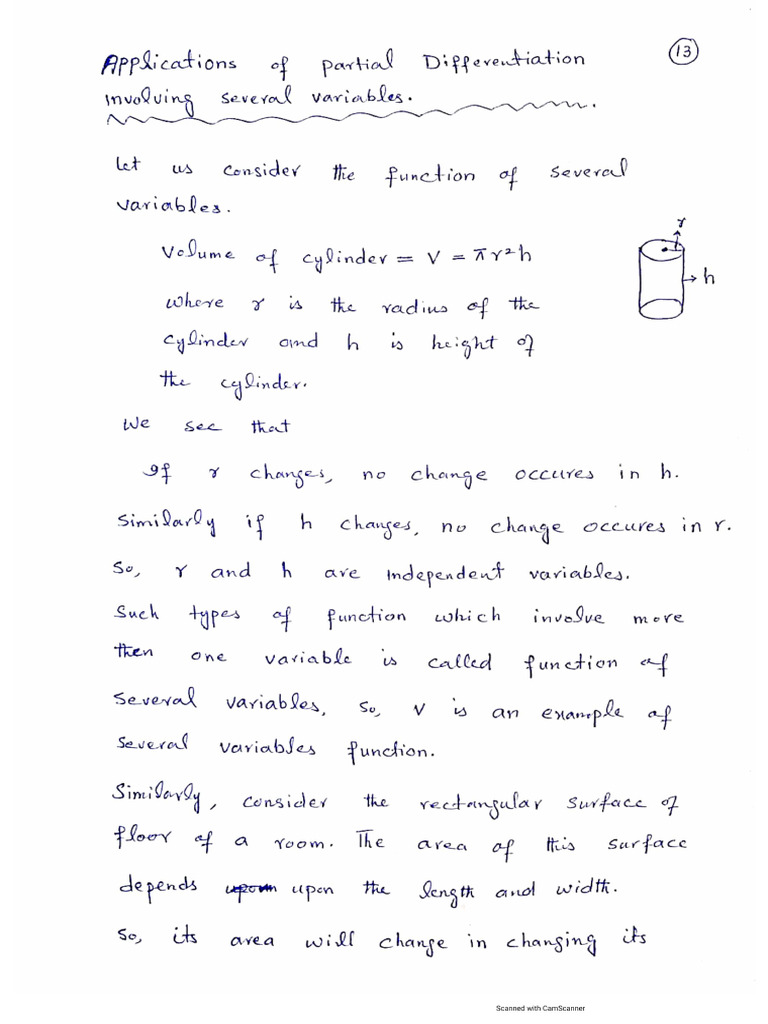 Applications of partial Differentiation
13
involving several variables.
Let us consider the function of several
variables.
r
Volume of cylinder = V = πr²h
h
where r is the radius of the
cylinder and h is height of
the cylinder.
We see that
If r changes, no change occures in h.
Similarly if h changes, no change occures in r.
So, r and h are independent variables.
Such types of function which involve more
then one variable is called function of
several variables, so, V is an example of
several variables function.
Similarly, consider the rectangular surface of
floor of a room. The area of this surface
depends upon upon the length and width.
So, its area will change in changing its
Scanned with CamScanner